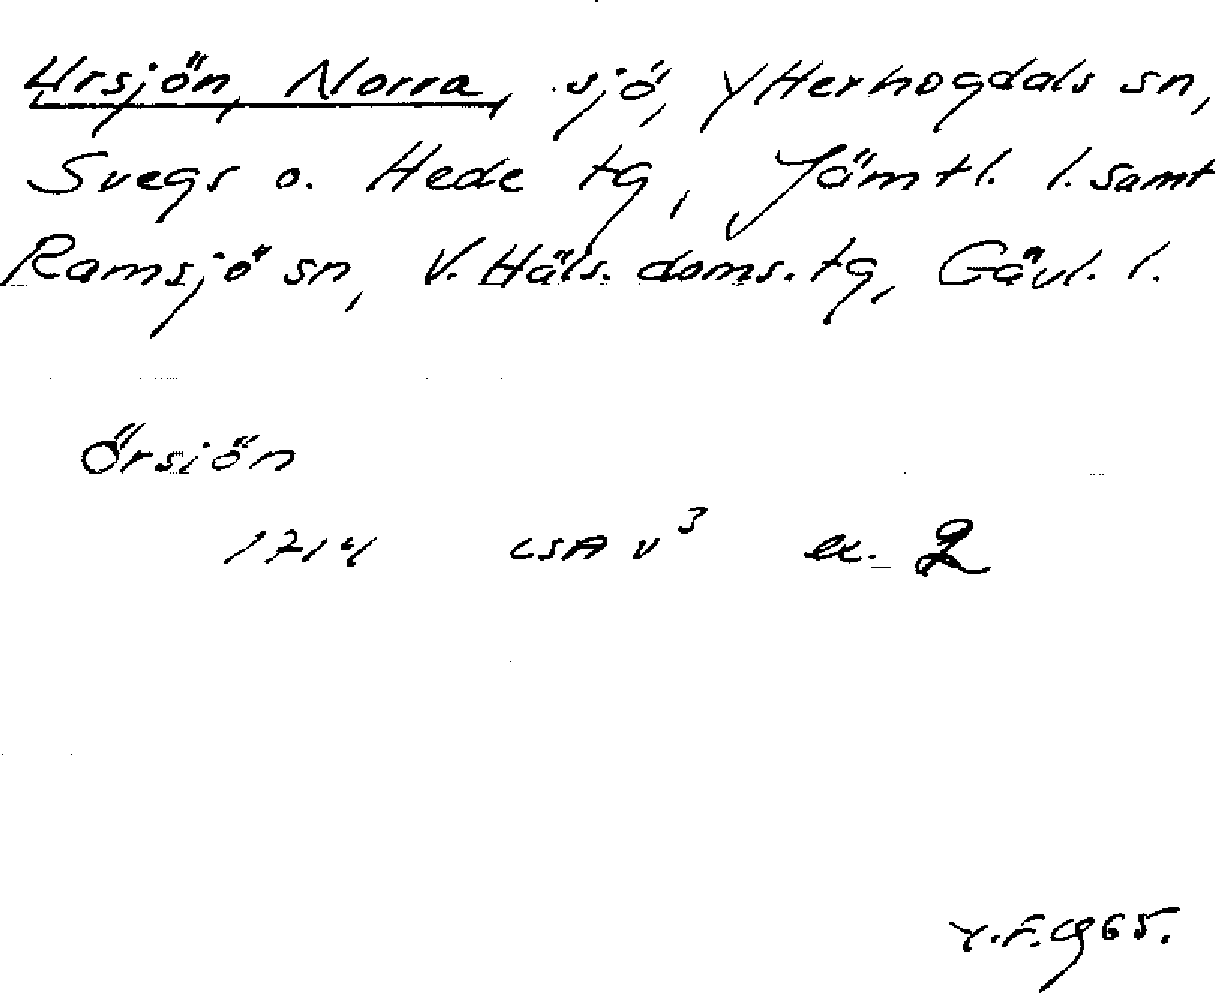 Ursjön, Norra, sjö, Ytterhogdals sn,
Svegs o. Hede tg, Jämtl. l. samt
Ramsjö sn, V. Häls. doms. tg, Gävl. l.
Örsiön
1714 LSA v³ ex. 2
Y.F. 1965.